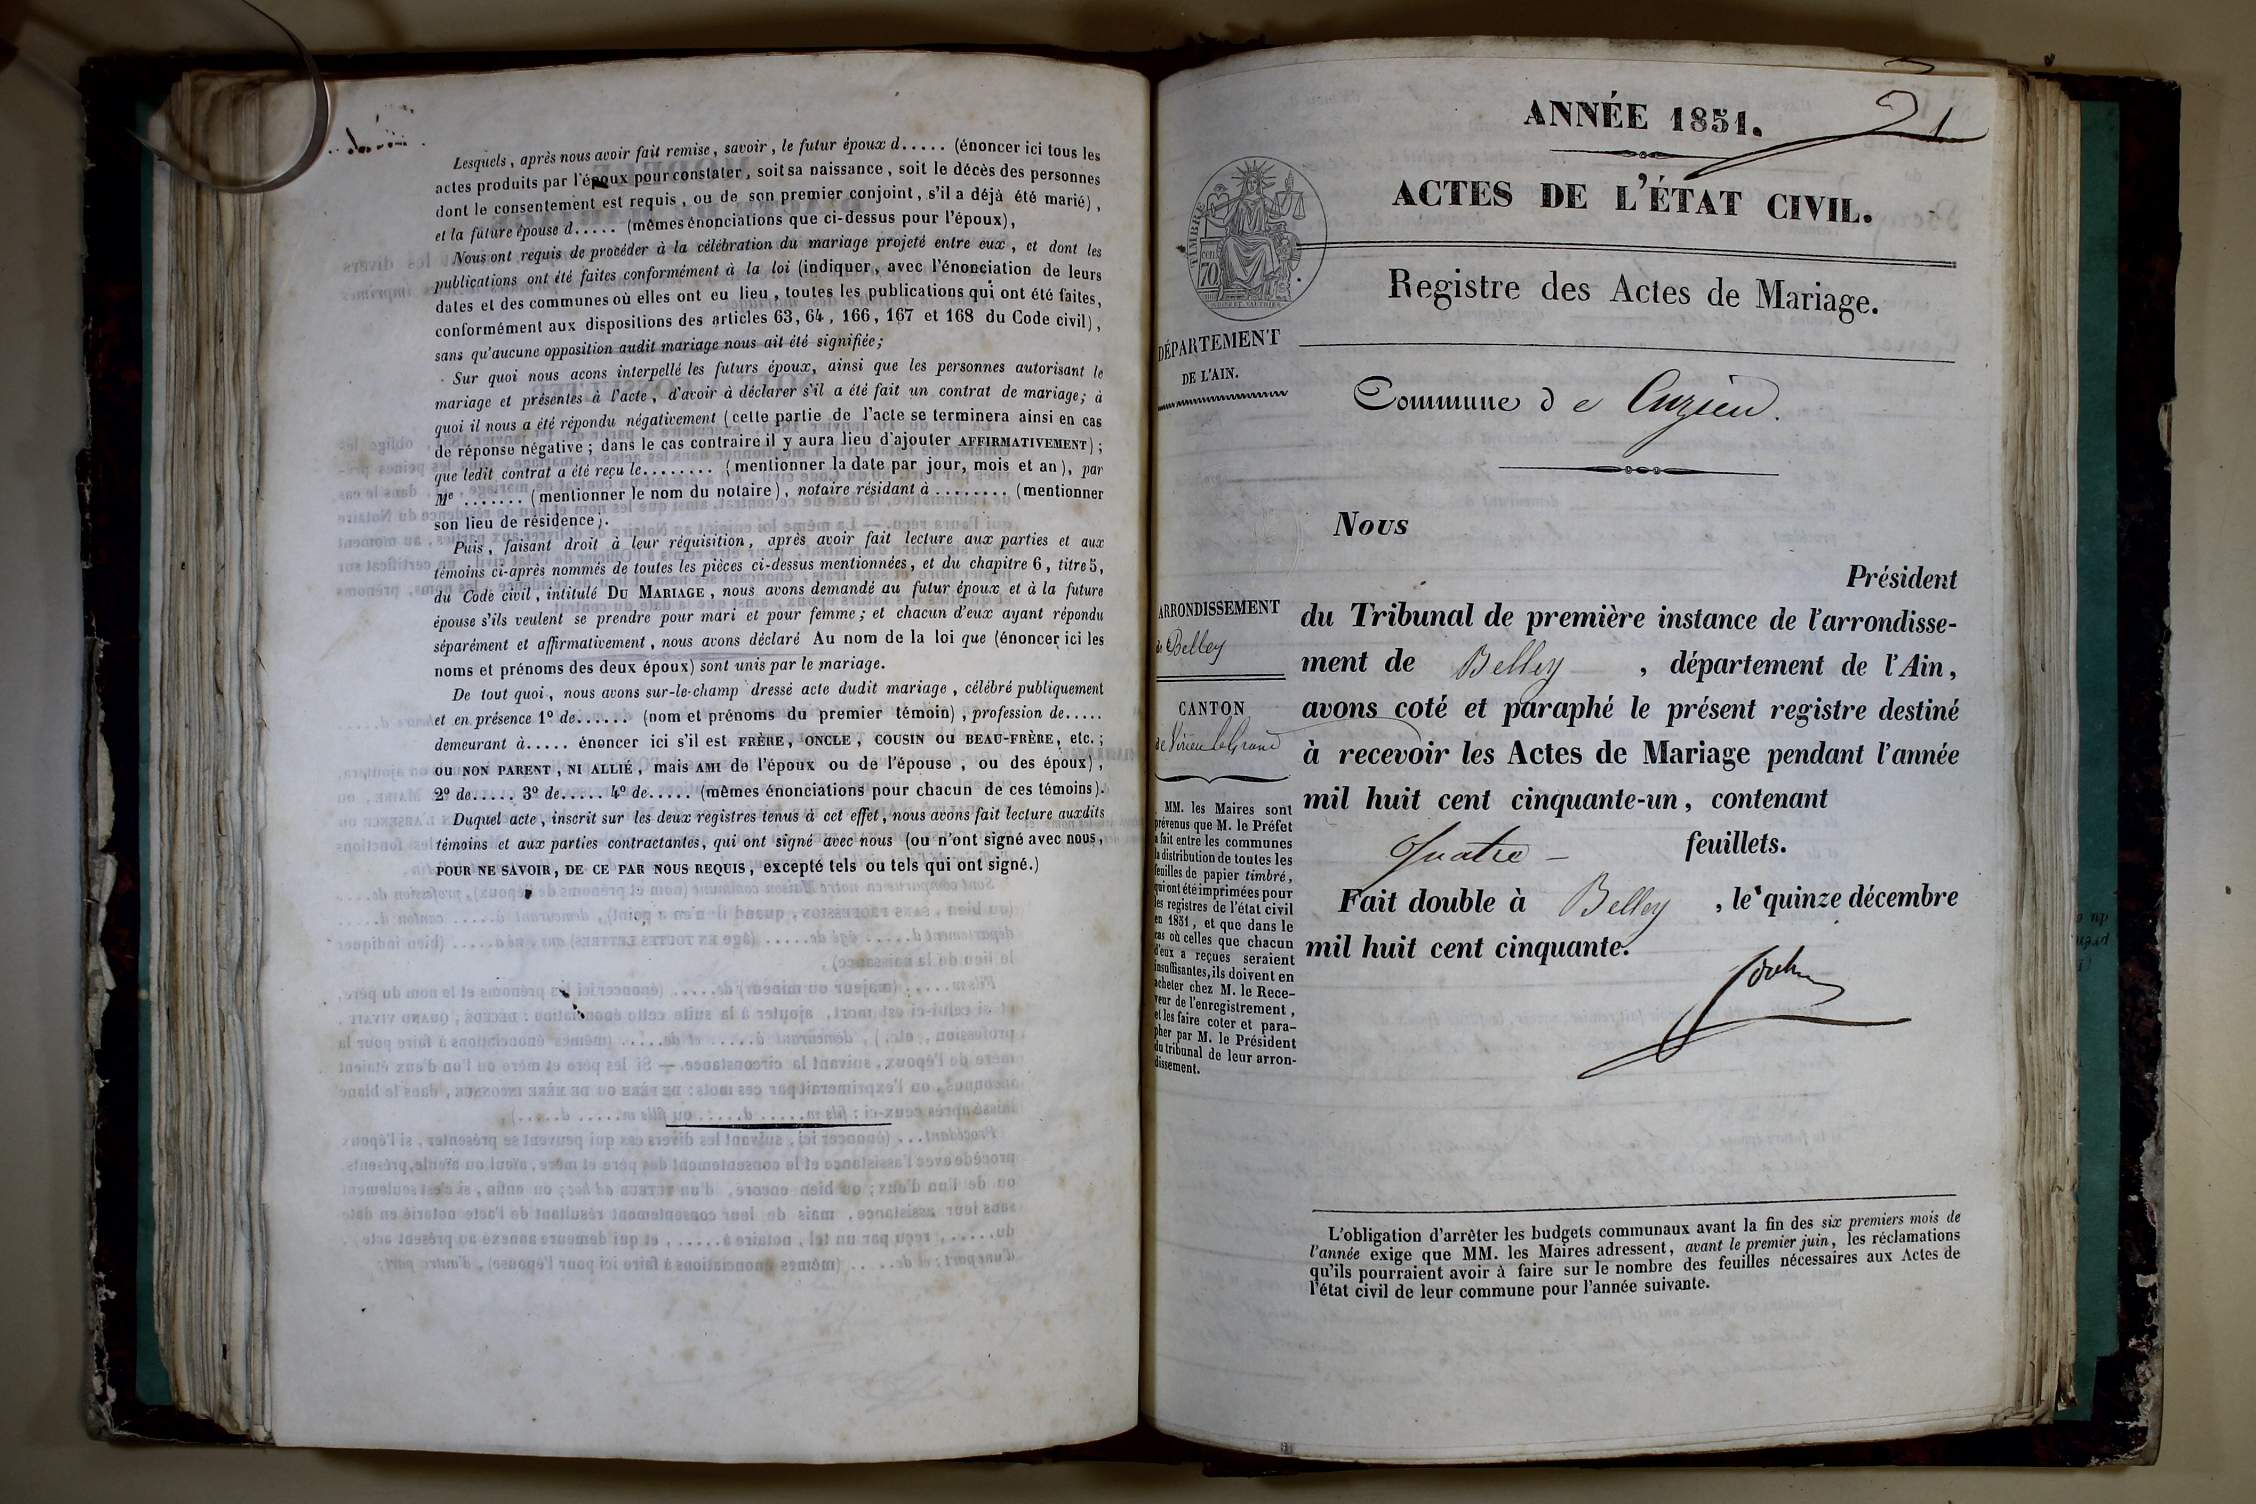 Lesquels, après nous avoir fait remise, savoir, le futur époux d..... (énoncer ici tous les
actes produits par l'époux pour constater, soit sa naissance, soit le décès des personnes
dont le consentement est requis, ou de son premier conjoint, s'il a déjà été marié),
et la future épouse d..... (mêmes énonciations que ci-dessus pour l'époux),
Nous ont requis de procéder à la célébration du mariage projeté entre eux, et dont les
publications ont été faites conformément à la loi (indiquer, avec l'énonciation de leurs
dates et des communes où elles ont eu lieu, toutes les publications qui ont été faites,
conformément aux dispositions des articles 63, 64, 166, 167 et 168 du Code civil),
sans qu'aucune opposition audit mariage nous ait été signifiée;
Sur quoi nous avons interpellé les futurs époux, ainsi que les personnes autorisant le
mariage et présentes à l'acte, d'avoir à déclarer s'il a été fait un contrat de mariage; à
quoi il nous a été répondu négativement (cette partie de l'acte se terminera ainsi en cas
de réponse négative; dans le cas contraire il y aura lieu d'ajouter AFFIRMATIVEMENT);
que ledit contrat a été reçu le........ (mentionner la date par jour, mois et an), par
Me ....... (mentionner le nom du notaire), notaire résidant à ........ (mentionner
son lieu de résidence).
Puis, faisant droit à leur réquisition, après avoir fait lecture aux parties et aux
témoins ci-après nommés de toutes les pièces ci-dessus mentionnées, et du chapitre 6, titre 5,
du Code civil, intitulé DU MARIAGE, nous avons demandé au futur époux et à la future
épouse s'ils veulent se prendre pour mari et pour femme; et chacun d'eux ayant répondu
séparément et affirmativement, nous avons déclaré Au nom de la loi que (énoncer ici les
noms et prénoms des deux époux) sont unis par le mariage.
De tout quoi, nous avons sur-le-champ dressé acte dudit mariage, célébré publiquement
et en présence 1º de...... (nom et prénoms du premier témoin), profession de.....
demeurant à..... énoncer ici s'il est FRÈRE, ONCLE, COUSIN ou BEAU-FRÈRE, etc.;
ou NON PARENT, NI ALLIÉ, mais AMI de l'époux ou de l'épouse, ou des époux),
2º de..... 3º de..... 4º de..... (mêmes énonciations pour chacun de ces témoins).
Duquel acte, inscrit sur les deux registres tenus à cet effet, nous avons fait lecture auxdits
témoins et aux parties contractantes, qui ont signé avec nous (ou n'ont signé avec nous,
POUR NE SAVOIR, DE CE PAR NOUS REQUIS, excepté tels ou tels qui ont signé.)
ANNÉE 1851.
21
ACTES DE L'ÉTAT CIVIL.
TIMBRE
70
Registre des Actes de Mariage.
DÉPARTEMENT
DE L'AIN.
Commune de Cuzieu.
Nous
Président
ARRONDISSEMENT
de Belley
du Tribunal de première instance de l'arrondisse-
ment de Belley, département de l'Ain,
CANTON
de Virieu le Grand
avons coté et paraphé le présent registre destiné
à recevoir les Actes de Mariage pendant l'année
mil huit cent cinquante-un, contenant
Quatre - feuillets.
Fait double à Belley, le quinze décembre
mil huit cent cinquante.
MM. les Maires sont
prévenus que M. le Préfet
a fait entre les communes
la distribution de toutes les
feuilles de papier timbré,
qui ont été imprimées pour
les registres de l'état civil
en 1851, et que dans le
cas où celles que chacun
d'eux a reçues seraient
insuffisantes, ils doivent en
acheter chez M. le Rece-
veur de l'enregistrement,
et les faire coter et para-
pher par M. le Président
du tribunal de leur arron-
dissement.
L'obligation d'arrêter les budgets communaux avant la fin des six premiers mois de
l'année exige que MM. les Maires adressent, avant le premier juin, les réclamations
qu'ils pourraient avoir à faire sur le nombre des feuilles nécessaires aux Actes de
l'état civil de leur commune pour l'année suivante.